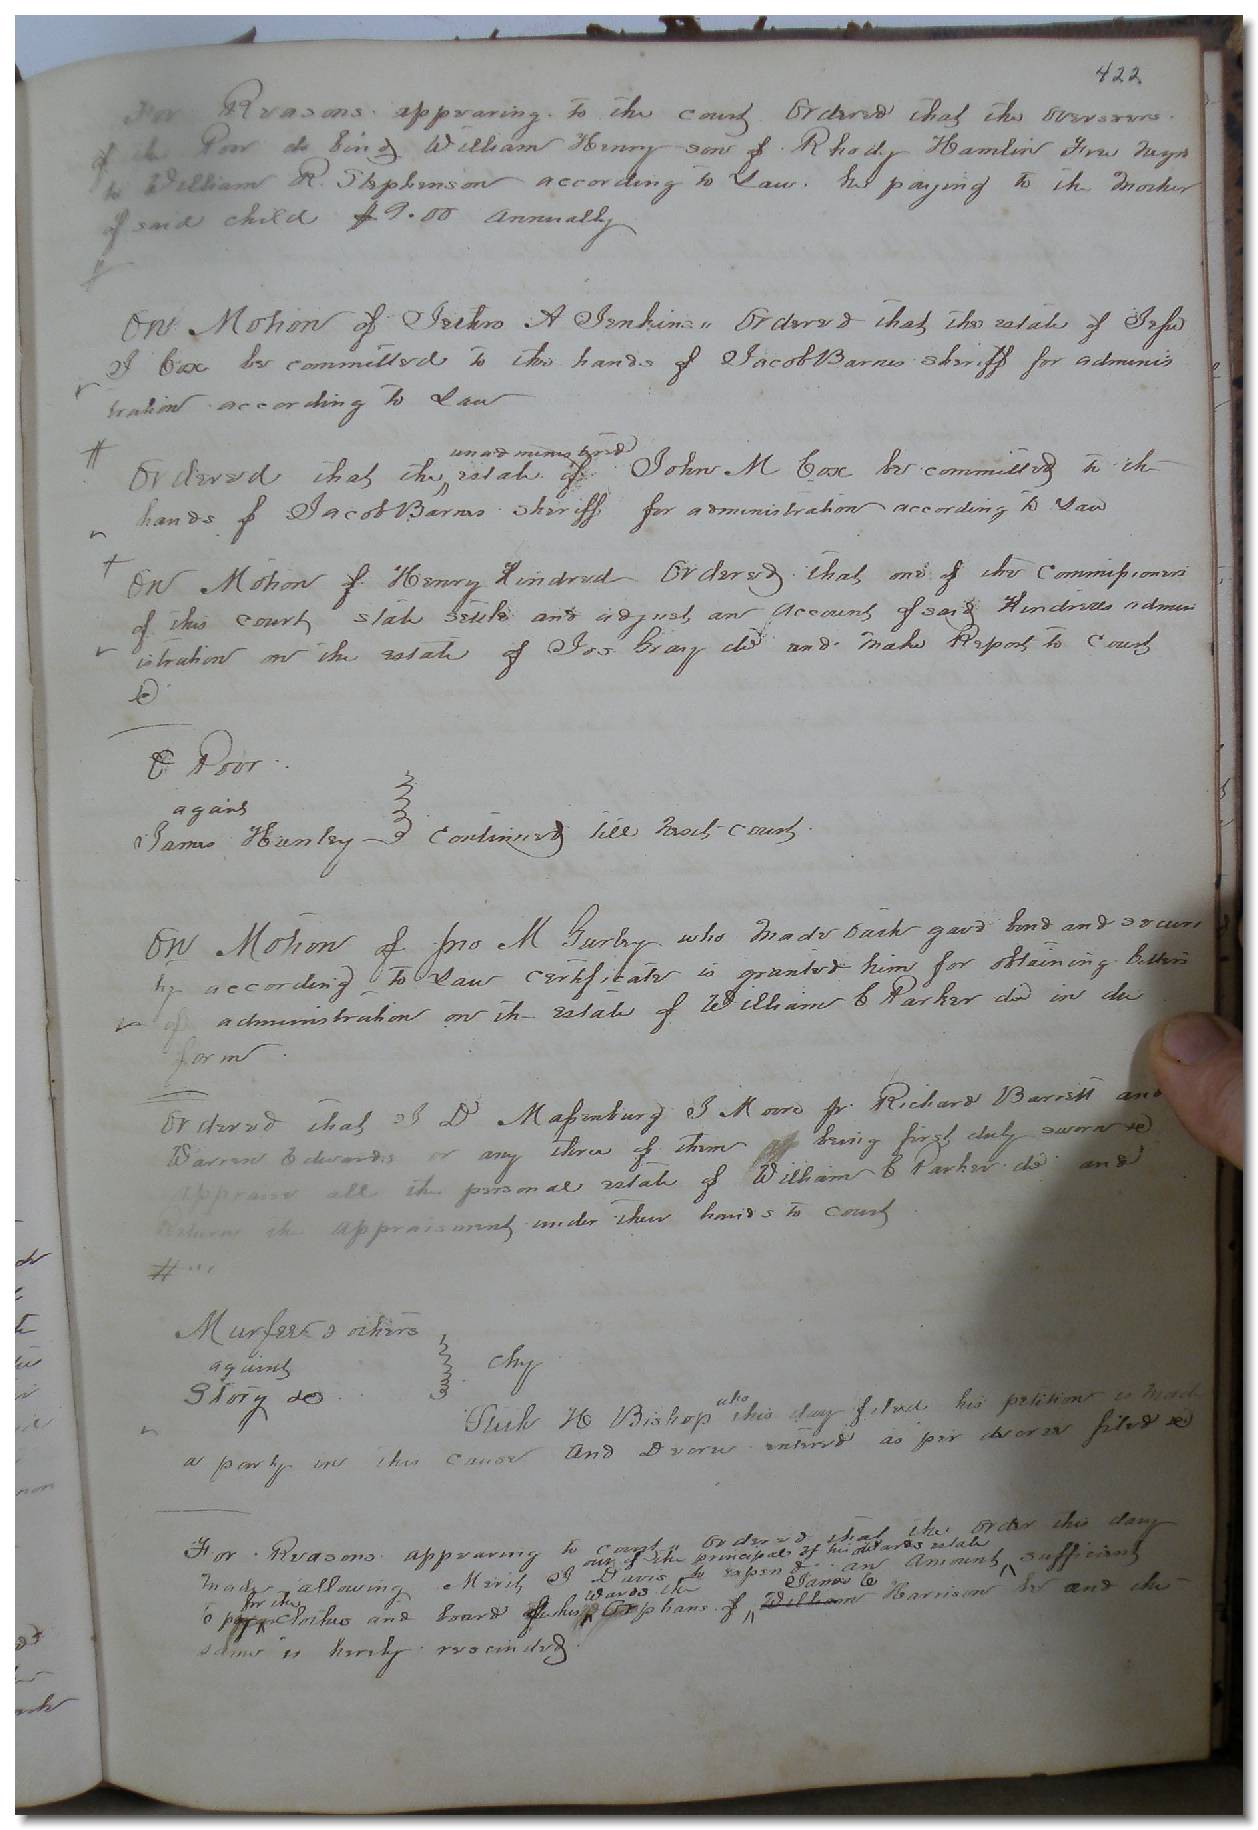 422
For Reasons appearing to the court Ordered that the overseers
of the Poor do bind William Henry son of Rhody Hamlin Free Negro
to William R. Stephenson according to Law. he paying to the mother
of said child $9.00 Annually
On Motion of Jethro A Jenkins Ordered that the estate of Jesse
J Cox be committed to the hands of Jacob Barnes sheriff for adminis
tration according to Law
unadministered
Ordered that the estate of John M Cox be committed to the
hands of Jacob Barnes sheriff for administration according to Law
On Motion of Henry Kindred Ordered that one of the Commissioners
of this court state settle and adjust an Account of said Kindreds admin
istration on the estate of Jos Gray dec and make Report to Court
&c
C Poor
against
James Hunley Continued till next court
On Motion of Jno M Gurley who made oath gave bond and securi
ty according to Law certificate is granted him for obtaining letters
of administration on the estate of William C Parker dec in due
form
Ordered that J D Massenburg J Moore jr. Richard Barrett and
Warren Edwards or any three of them being first duly sworn do
appraise all the personal estate of William C Parker dec and
Return the appraisement under their hands to court
Murfee & others
against chy
Story &c
who
H Bishop this day filed his petition is made
a party in this cause And Decree entered as per decree filed &c
For Reasons appearing to court Ordered that the order this day
out of the principal of his wards estate
made allowing Merit J Davis to expend an amount sufficient
for the wards the James C
to pay clothes and board of his Orphans of William Harrison be and the
same is hereby rescinded